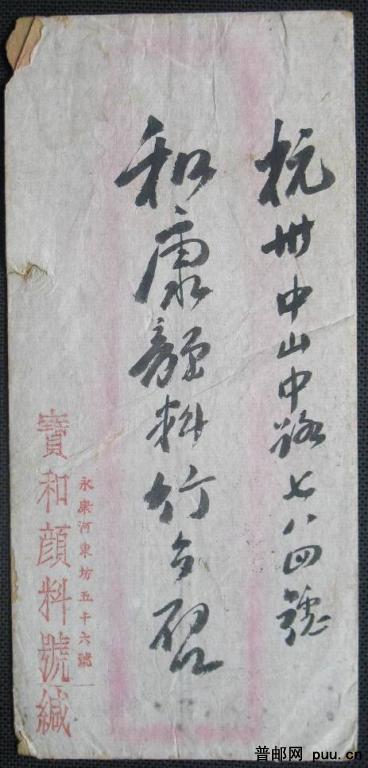 杭州中山中路七八四號
和康顏料行台啟
永康河東坊五十六號
寶和顏料號緘
普邮网 puu.cn